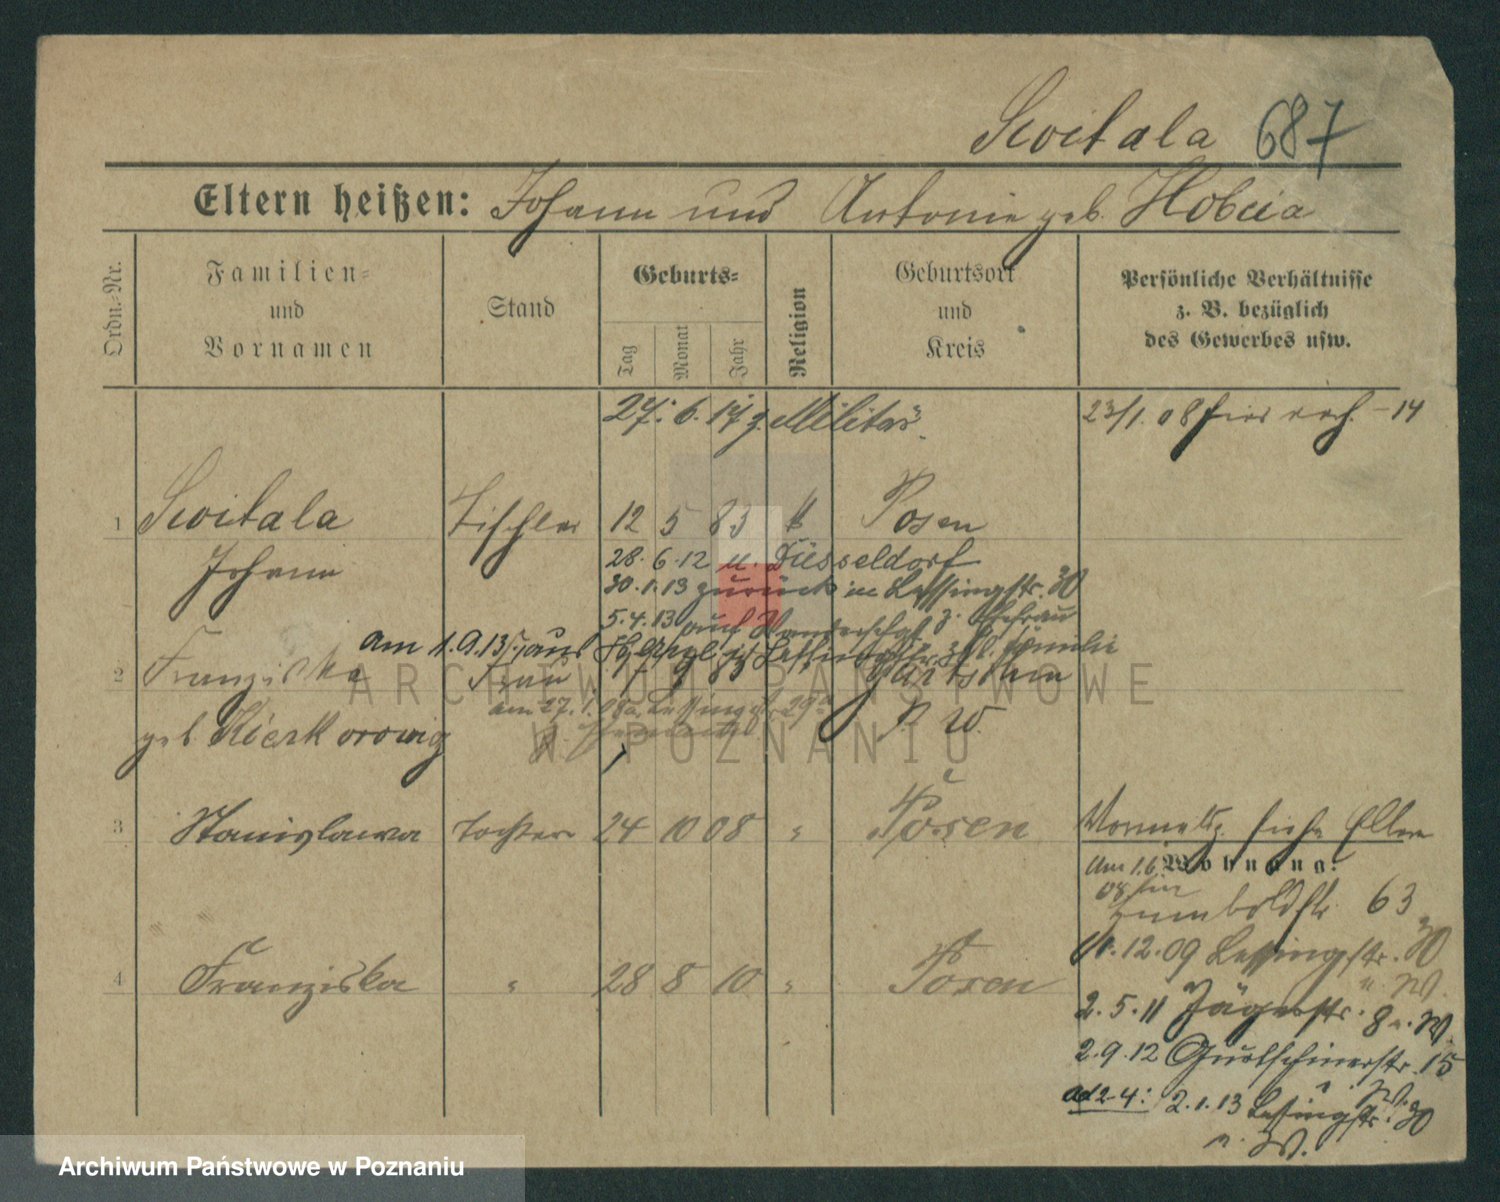 Switala 687
Eltern heißen: Johann und Antonie geb.
Ordn.-Nr.
Familien- und Vornamen
Stand
Geburts-
Tag
Monat
Jahr
Religion
Geburtsort und Kreis
Persönliche Verhältnisse z. B. bezüglich des Gewerbes usw.
27. 6. 17 z. Militär.
23/1. 08
1 Switala Tischler 12 5 83 k Posen
Johann
28. 6. 12 n. Düsseldorf
30. 1. 13 zurück in Lessingstr. 30
5. 4. 13 auf Wanderschaft z. Ehefrau
am 1.9.13
2 Franziska Frau 9 83
geb P. W.
3 Stanislawa Tochter 24 10 08 " Posen
siehe Eltern
Wohnung:
Am 1.6.
08 hier
Humboldtstr. 63
12. 09 Lessingstr. 30
4 Franziska " 28 8 10 " Posen
u. W.
2. 5. 11 Jägerstr. 8 u. W.
2. 9. 12 Gurtschinerstr. 15
u. W.
ad 2-4: 2. 1. 13 Lessingstr. 30
u. W.
ARCHIWUM PAŃSTWOWE
W POZNANIU
Archiwum Państwowe w Poznaniu